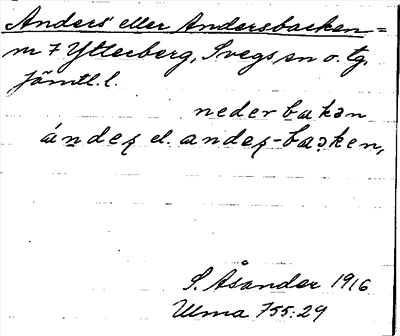 Anders eller Andersbacken =
m 7 Ytterberg, Svegs sn o. tg.
Jämtl. l.
nederbakən
ándeʂ el. andeʂ-bakken,
S. Åsander 1916
Ulma 755:29